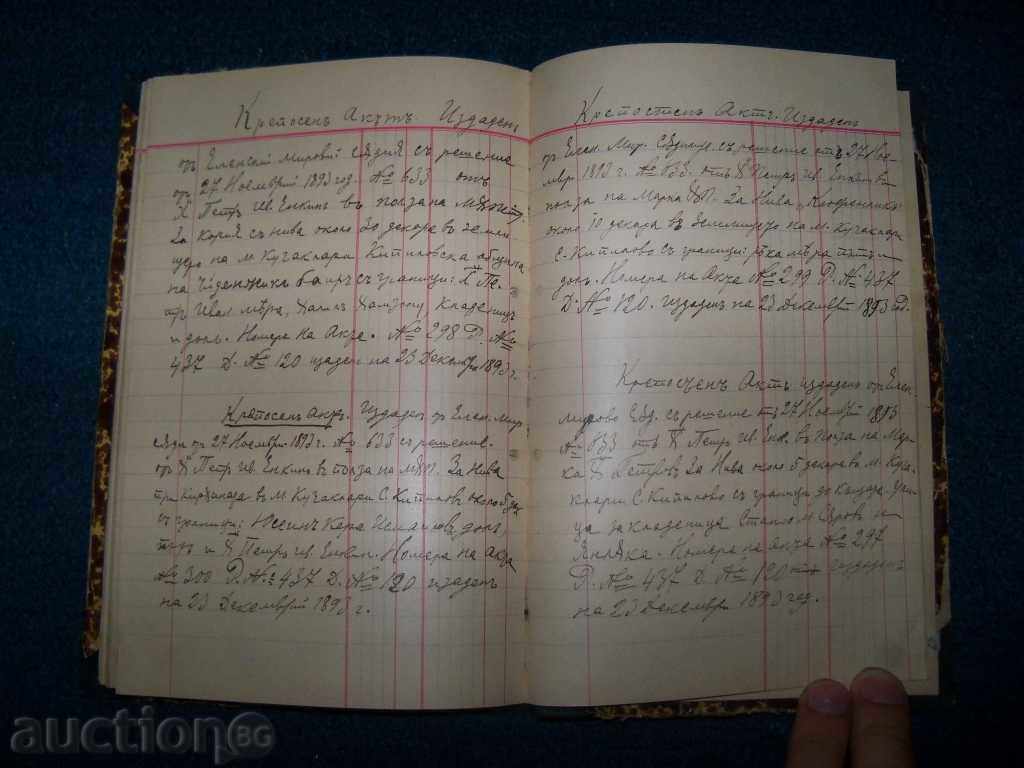 Крепосенъ Актъ Издаденъ
отъ Еленский Мировий Сѫдия съ решение
отъ 27 Ноемврий 1893 год. № 633 отъ
Х Петръ Ив. Енкинъ въ ползана
За кория съ нива около 30 декаре въ земли
щето на м Кучакларе Китиловска община
на байръ съ граници: Х Пе-
тръ Иван мѣра, Кладенецъ
и долъ. Номера на Акта. № 298 Р. №
437 Д. № 120 издаден на 23 Декемврий 1893 г.
Крепосенъ Актъ. Издаден отъ Елен. Мир
сѫди отъ 27 Ноемврий 1893 г. № 633 съ решение.
отъ Х Петръ Ив. Енкинъ въ ползa на За Нива
при въ М Кучакларе С. Китилово около 5 дек
съ граници: Кера долъ,
пътъ и Х Петръ Ив. Енкин. Номера на акта
№ 300 Р. № 437 Д. № 120 издаденъ
на 23 Декемврий 1893 г.
Крепостенъ Актъ. Издаденъ
отъ Елен. Мир. Сѫдия съ решение отъ 27 Ное-
мвр. 1893 г. № 633. отъ Х Петръ Ив. Енкинъ въ
полза на Марка За Нива
около 10 декара въ Землището на М. Кучаклари
С. Китилово съ граници: мѣра пътъ и
долъ. Номера на Акта № 299 Р. № 437
Д. № 120. издаденъ на 23 Декемврий 1893 год.
Крепосченъ Актъ издаденъ отъ Елен.
мирово сѫд. съ решение отъ 27 Ноемврий 1893
№ 633 отъ Х Петръ Ив. Енк. въ полза на Мар
ка Х Петровъ За Нива около 5 декаре въ М. Куча
клари С. Китилово съ граници до къщата. Ули
ца за кладенеца Станю М. и
Номера на акта № 297
Р. № 437 Д. № 120 издаденъ
на 23 Декемврий 1893 год.
auction BG